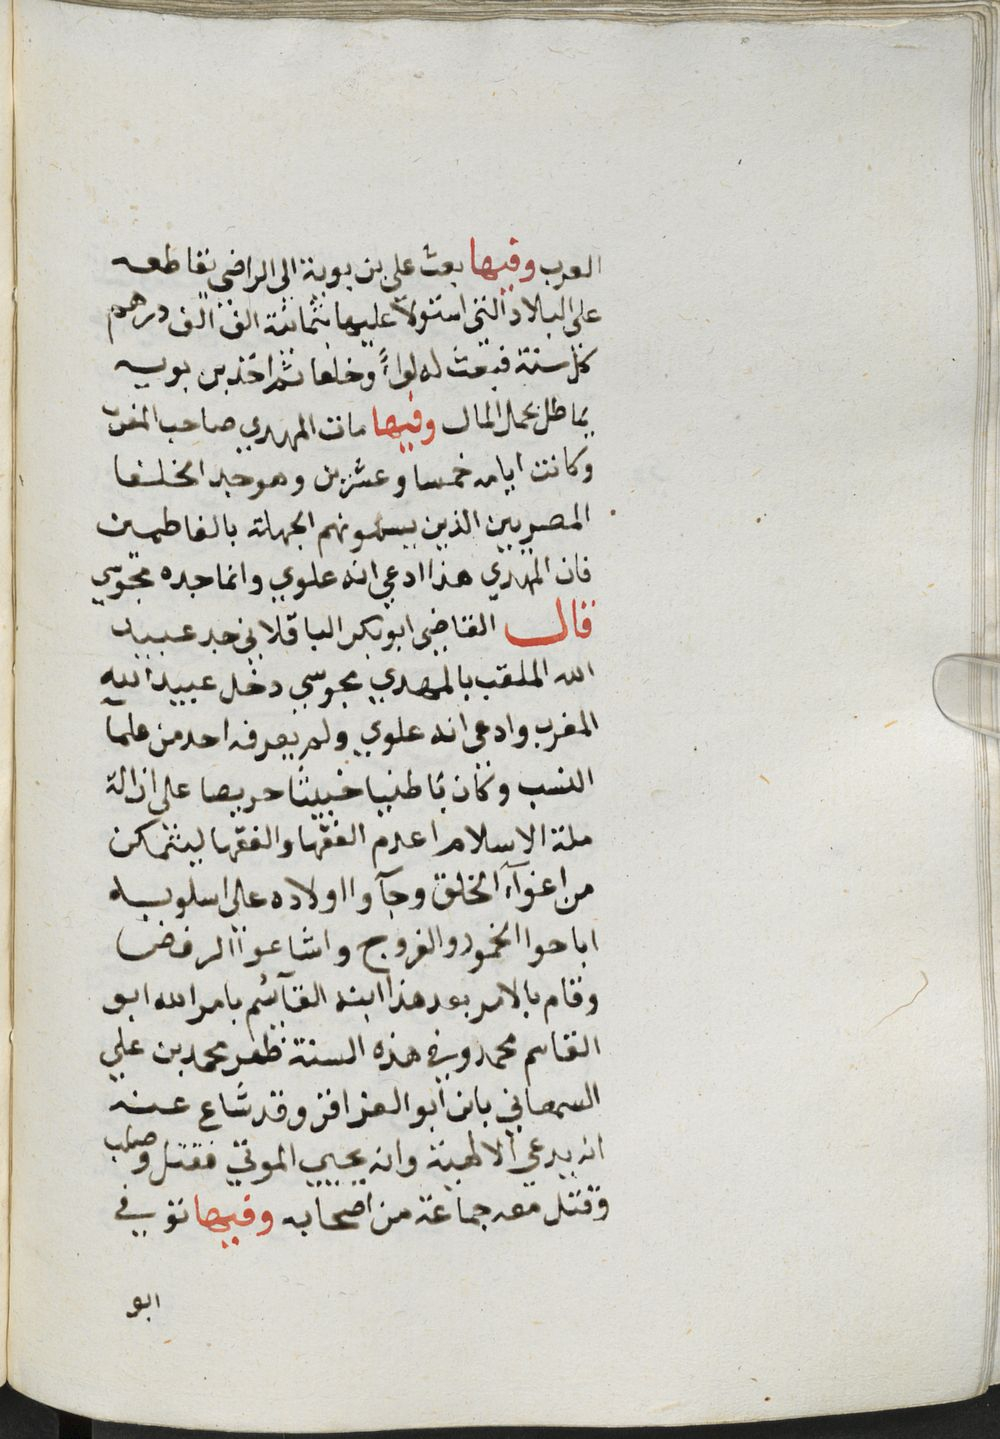 العرب وفيها بعث على بن بوية الى الراضى يقاطعه
على البلاد التى استولا عليها بثمانية الف الف درهم
كل سنة فبعث له لواءً وخلعا ثم اخذ بن بويه
يماطل بحمل المال وفيها مات المهدي صاحب المغرب
وكانت ايامه خمسا وعشرين وهو جد الخلفا
المصريين الذين يسمونهم الجهلة بالفاطميين
فان المهدي هذا ادعى انه علوي وانما جده مجوسي
قال القاضى ابو بكر الباقلاني جد عبيد
الله الملقب بالمهدي مجوسي دخل عبيد الله
المغرب وادعى انه علوي ولم يعرفه احد من علما
النسب وكان باطنيا خبيثا حريصا على ازالة
ملة الاسلام اعدم الفقها والفقها ليتمكن
من اغوآء الخلق وجآوا اولاده على اسلوبه
اباحوا الخمور والفروج واشاعوا الرفض
وقام بالامر بعد هذا ابنه القآئم بامر الله ابو
القاسم محمد وفى هذه السنة ظهر محمد بن علي
السمعاني بابن ابو العزاقز وقد شاع عنه
انه يدعي الالهية وانه يحيي الموتى فقتل وصلب
وقتل معه جماعة من اصحابه وفيها توفي
ابو